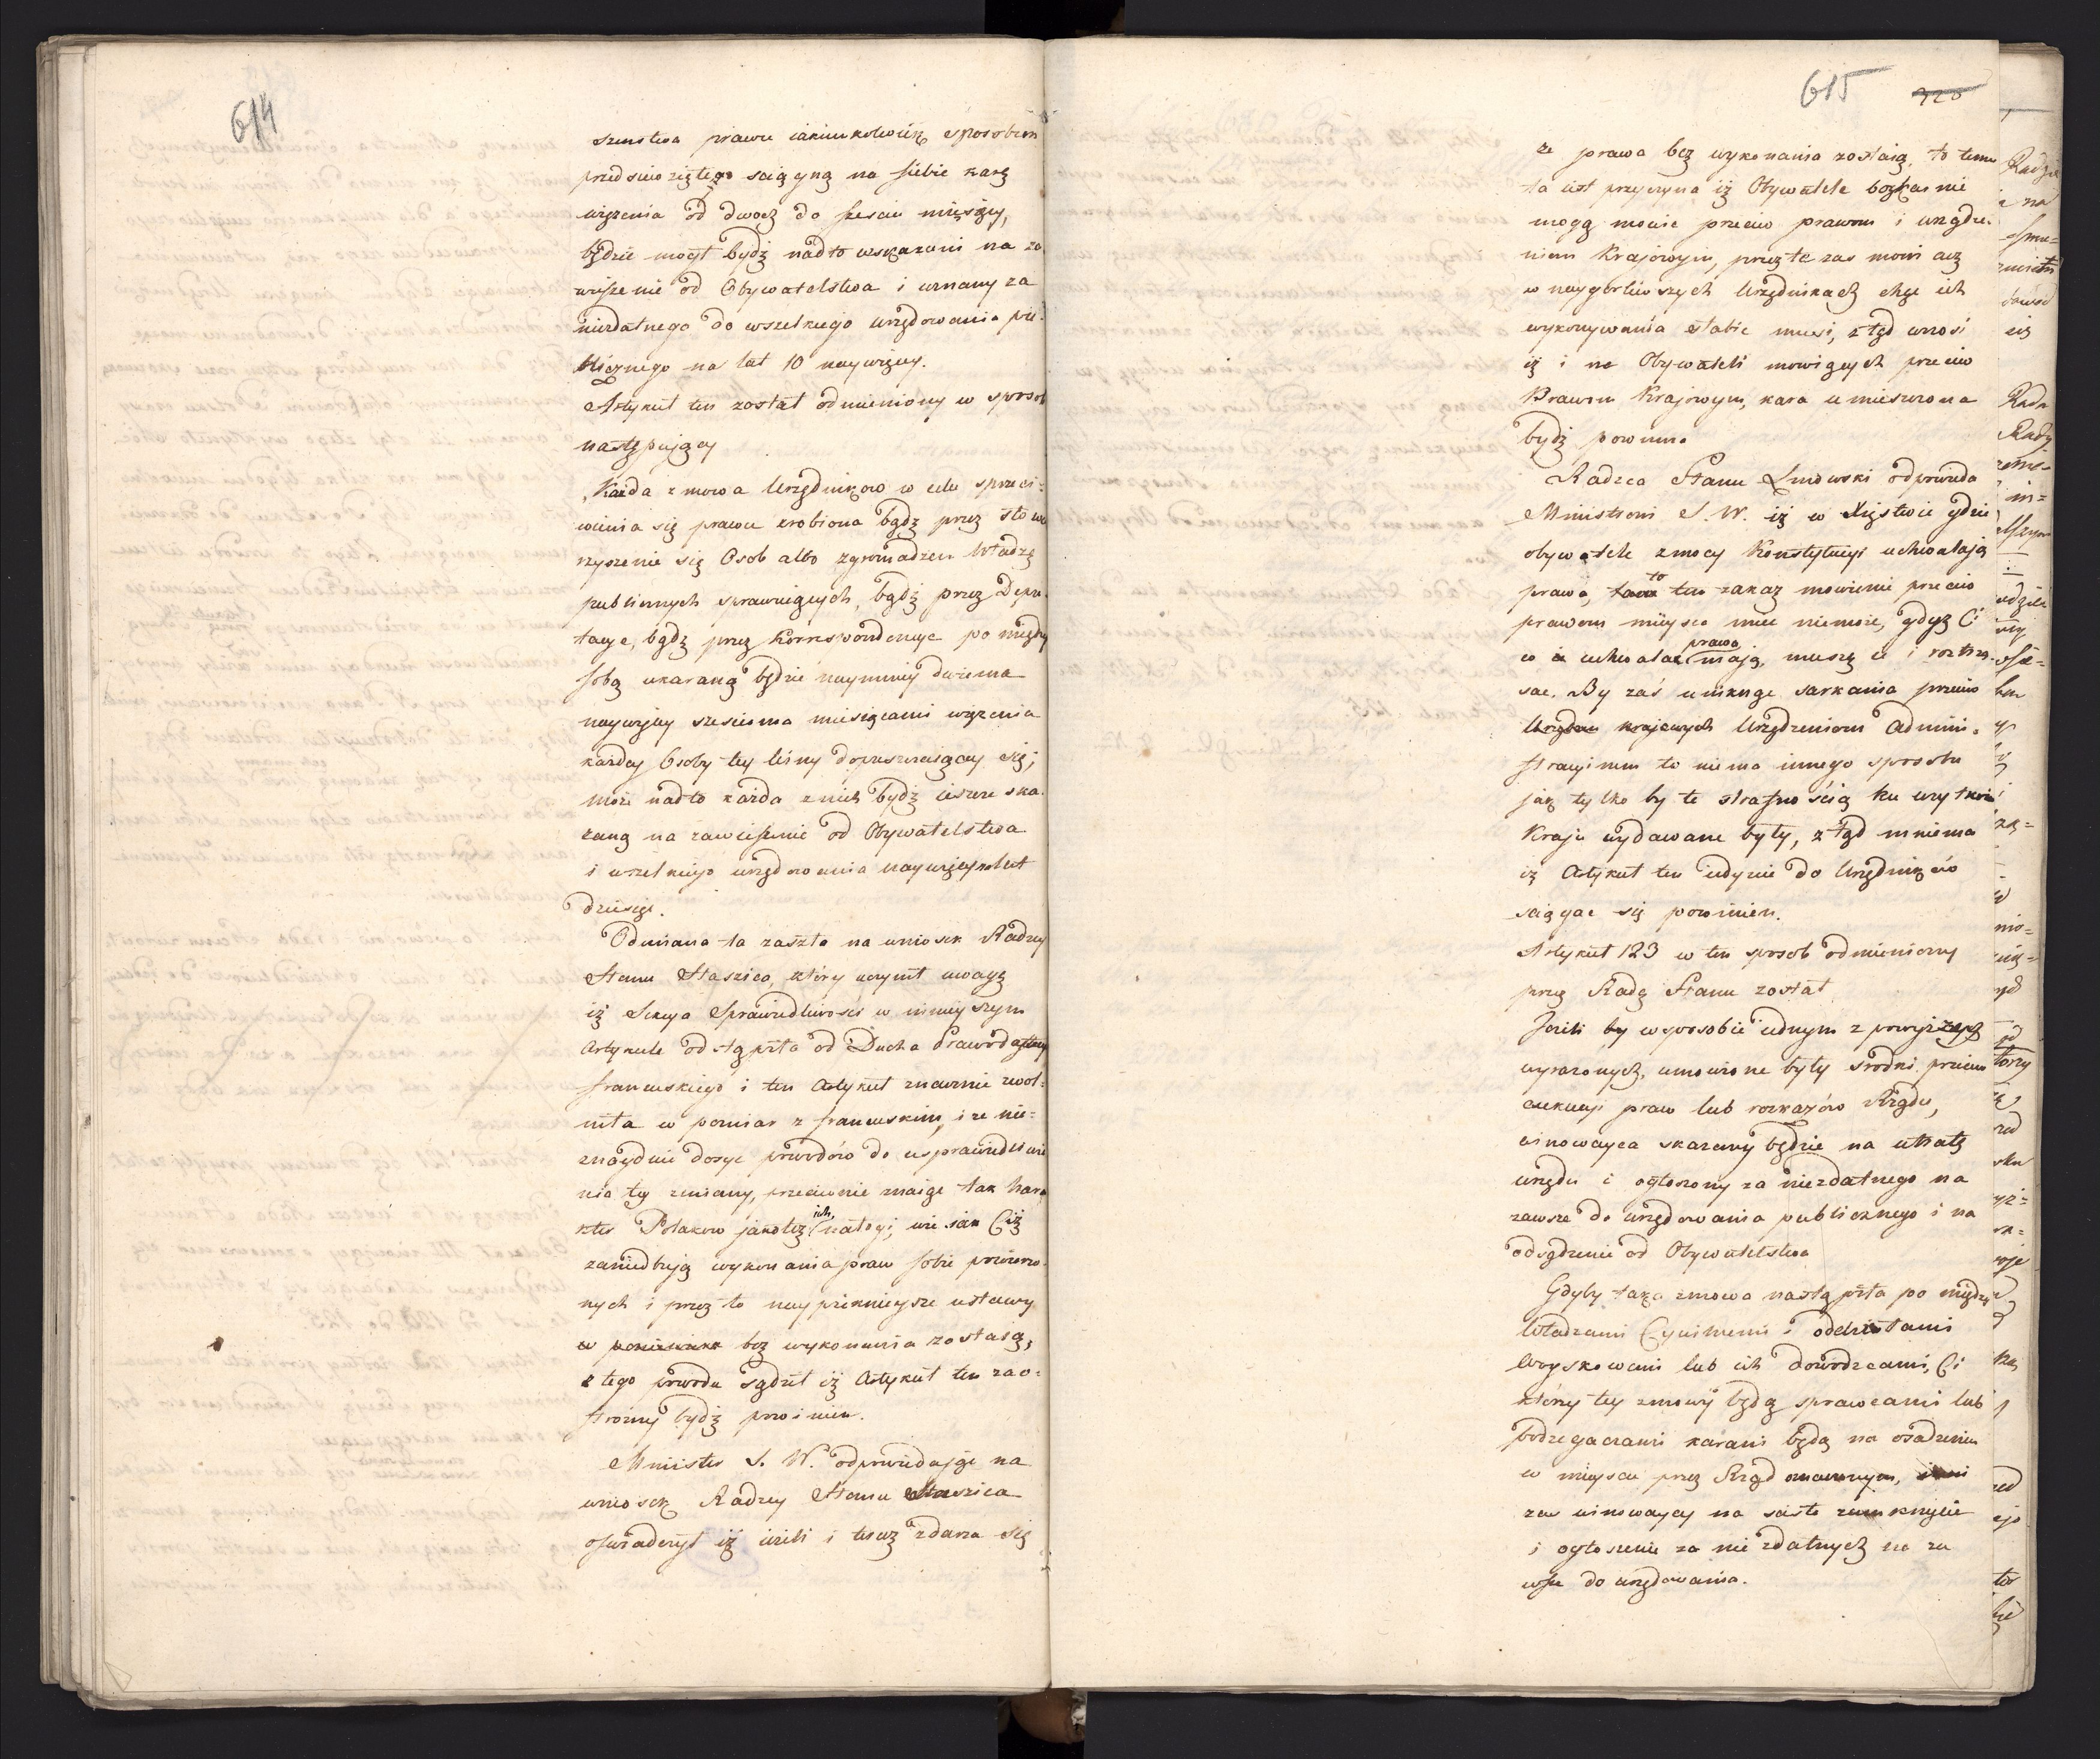 614
szenstwa prawu iakimkolwiek sposobem
przedsiewziętego sciągną na siebie karę
więzienia od dwoch do szesciu miesięcy,
będzie mogł bydź nadto wskazani na za
wiszenie od Obywatelstwa i uznany za
niezdatnego do wszelkiego urzędowania pu-
blicznego na lat 10 naywięcey.
Artykuł ten został odmieniony w sposob
następujący
Każda zmowa Urzędnikow w celu sprzeci-
wienia się prawu zrobiona bądz przez stowa
rzyszenie się Osob albo zgromadzen Władzę
publicznych sprawuiących, bądź przez Depu-
tacye, bądz przez Korrespondencye po między
sobą ukaraną będzie naymniey dwiema
naywięcey szescioma miesiącami więzienia
każdey Osoby tey winy dopuszczaiącey się;
może nadto każda z nich bydź ieszcze ska-
zaną na zawieszenie od Obywatelstwa
i wszelkiego urzędowania naywięcey na lat
dziesięc.
Odmiana ta zaszła na wniosek Radzcy
Stanu Staszica, który uczynił uwagę
iż Sekcya Sprawiedliwości w ninieyszym
Artykule odstąpiła od Ducha Prawodawcy
francuskiego i ten Artykuł znacznie zwol-
niła w pomiar z francuskim, i że nie-
znayduie dosyc powodów do usprawiedliwie
nia tey zmiany, przeciwnie znaiąc tak hara
kter Polakow jakoteż ich nałogi, wie jak Ciż
zaniedbuią wykonania praw sobie powierzo-
nych i przez to naypięknieysze ustawy
bez wykonania zostaią,
z tego powodu sądził iż Artykuł ten zao-
strzony bydź powinien.
Minister S. W. odpowiedając na
wniosek Radzcy Stanu Staszica
oświadczył iż ieżeli i teraz zdarza się
615
328
że prawa bez wykonania zostaią, to temu
ta iest przyczyna iż Obywatele bezkarnie
mogą mowic przeciw prawom i urządze-
niom Krajowym, przez te zas mowi aż
w naygorliwszych Urzędnikach chęc ich
wykonywania słabic musi, ztąd wnosi
iż i na Obywateli mowiących przeciw
Prawom Krajowym, kara umieszczona
bydź powinna
Radzca Stanu Linowski odpowieda
Ministrowi S. W. iż w Xięstwie gdzie
obywatele z mocy Konstytucyi uchwalają
prawa, to ten zakaz mowienia przeciw
prawom mieysca miec niemoże, gdyż Ci
co ie uchwalac prawo mają, muszą ie i roztrzą-
sac. By zaś uniknąc sarkania przeciw
krajowych Urządzeniom Admini-
stracyinem to niema innego sposobu
jak tylko by te ztrafnością ku uzytkowi
Kraju wydawane były, ztąd mniema
iż Artykuł ten iedynie do Urzędników
sciągac się powinien.
Artykuł 123 w ten sposob odmieniony
przez Radę Stanu został
Jeżeli by w sposobie iednym z powyższych
wyrażonych, umowione były srodki przeciw
exekucyi praw lub rozkazów Rządu,
winowayca skazany będzie na utratę
urzędu i ogłoszony za niezdatnego na
zawsze do urzędowania publicznego i na
odsądzenie od Obywatelstwa
Gdyby taka zmowa nastąpiła po między
Władzami Cywilnemi i oddziałami
Woyskowemi lub ich dowodzcami, Ci
którzy tey zmowy będą sprawcami lub
podzegaczami karani będą na osadzenie
w mieyscu przez Rząd oznaczonym, inni
zas winowaycy na scisłe zamknięcie
i ogłoszenie za nie zdatnych na za
wsze do urzędowania.